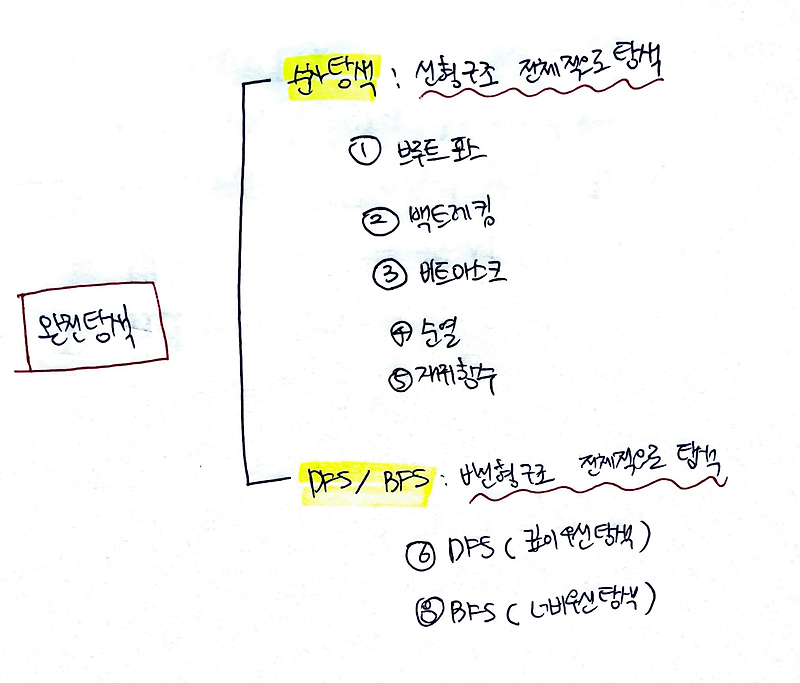 순차탐색 : 선형구조 전체적으로 탐색
① 브루트 포스
② 백트레킹
③ 비트마스크
④ 순열
⑤ 재귀함수
완전탐색
DFS / BFS : 비선형구조 전체적으로 탐색
⑥ DFS ( 깊이우선탐색 )
⑧ BFS ( 너비우선탐색 )